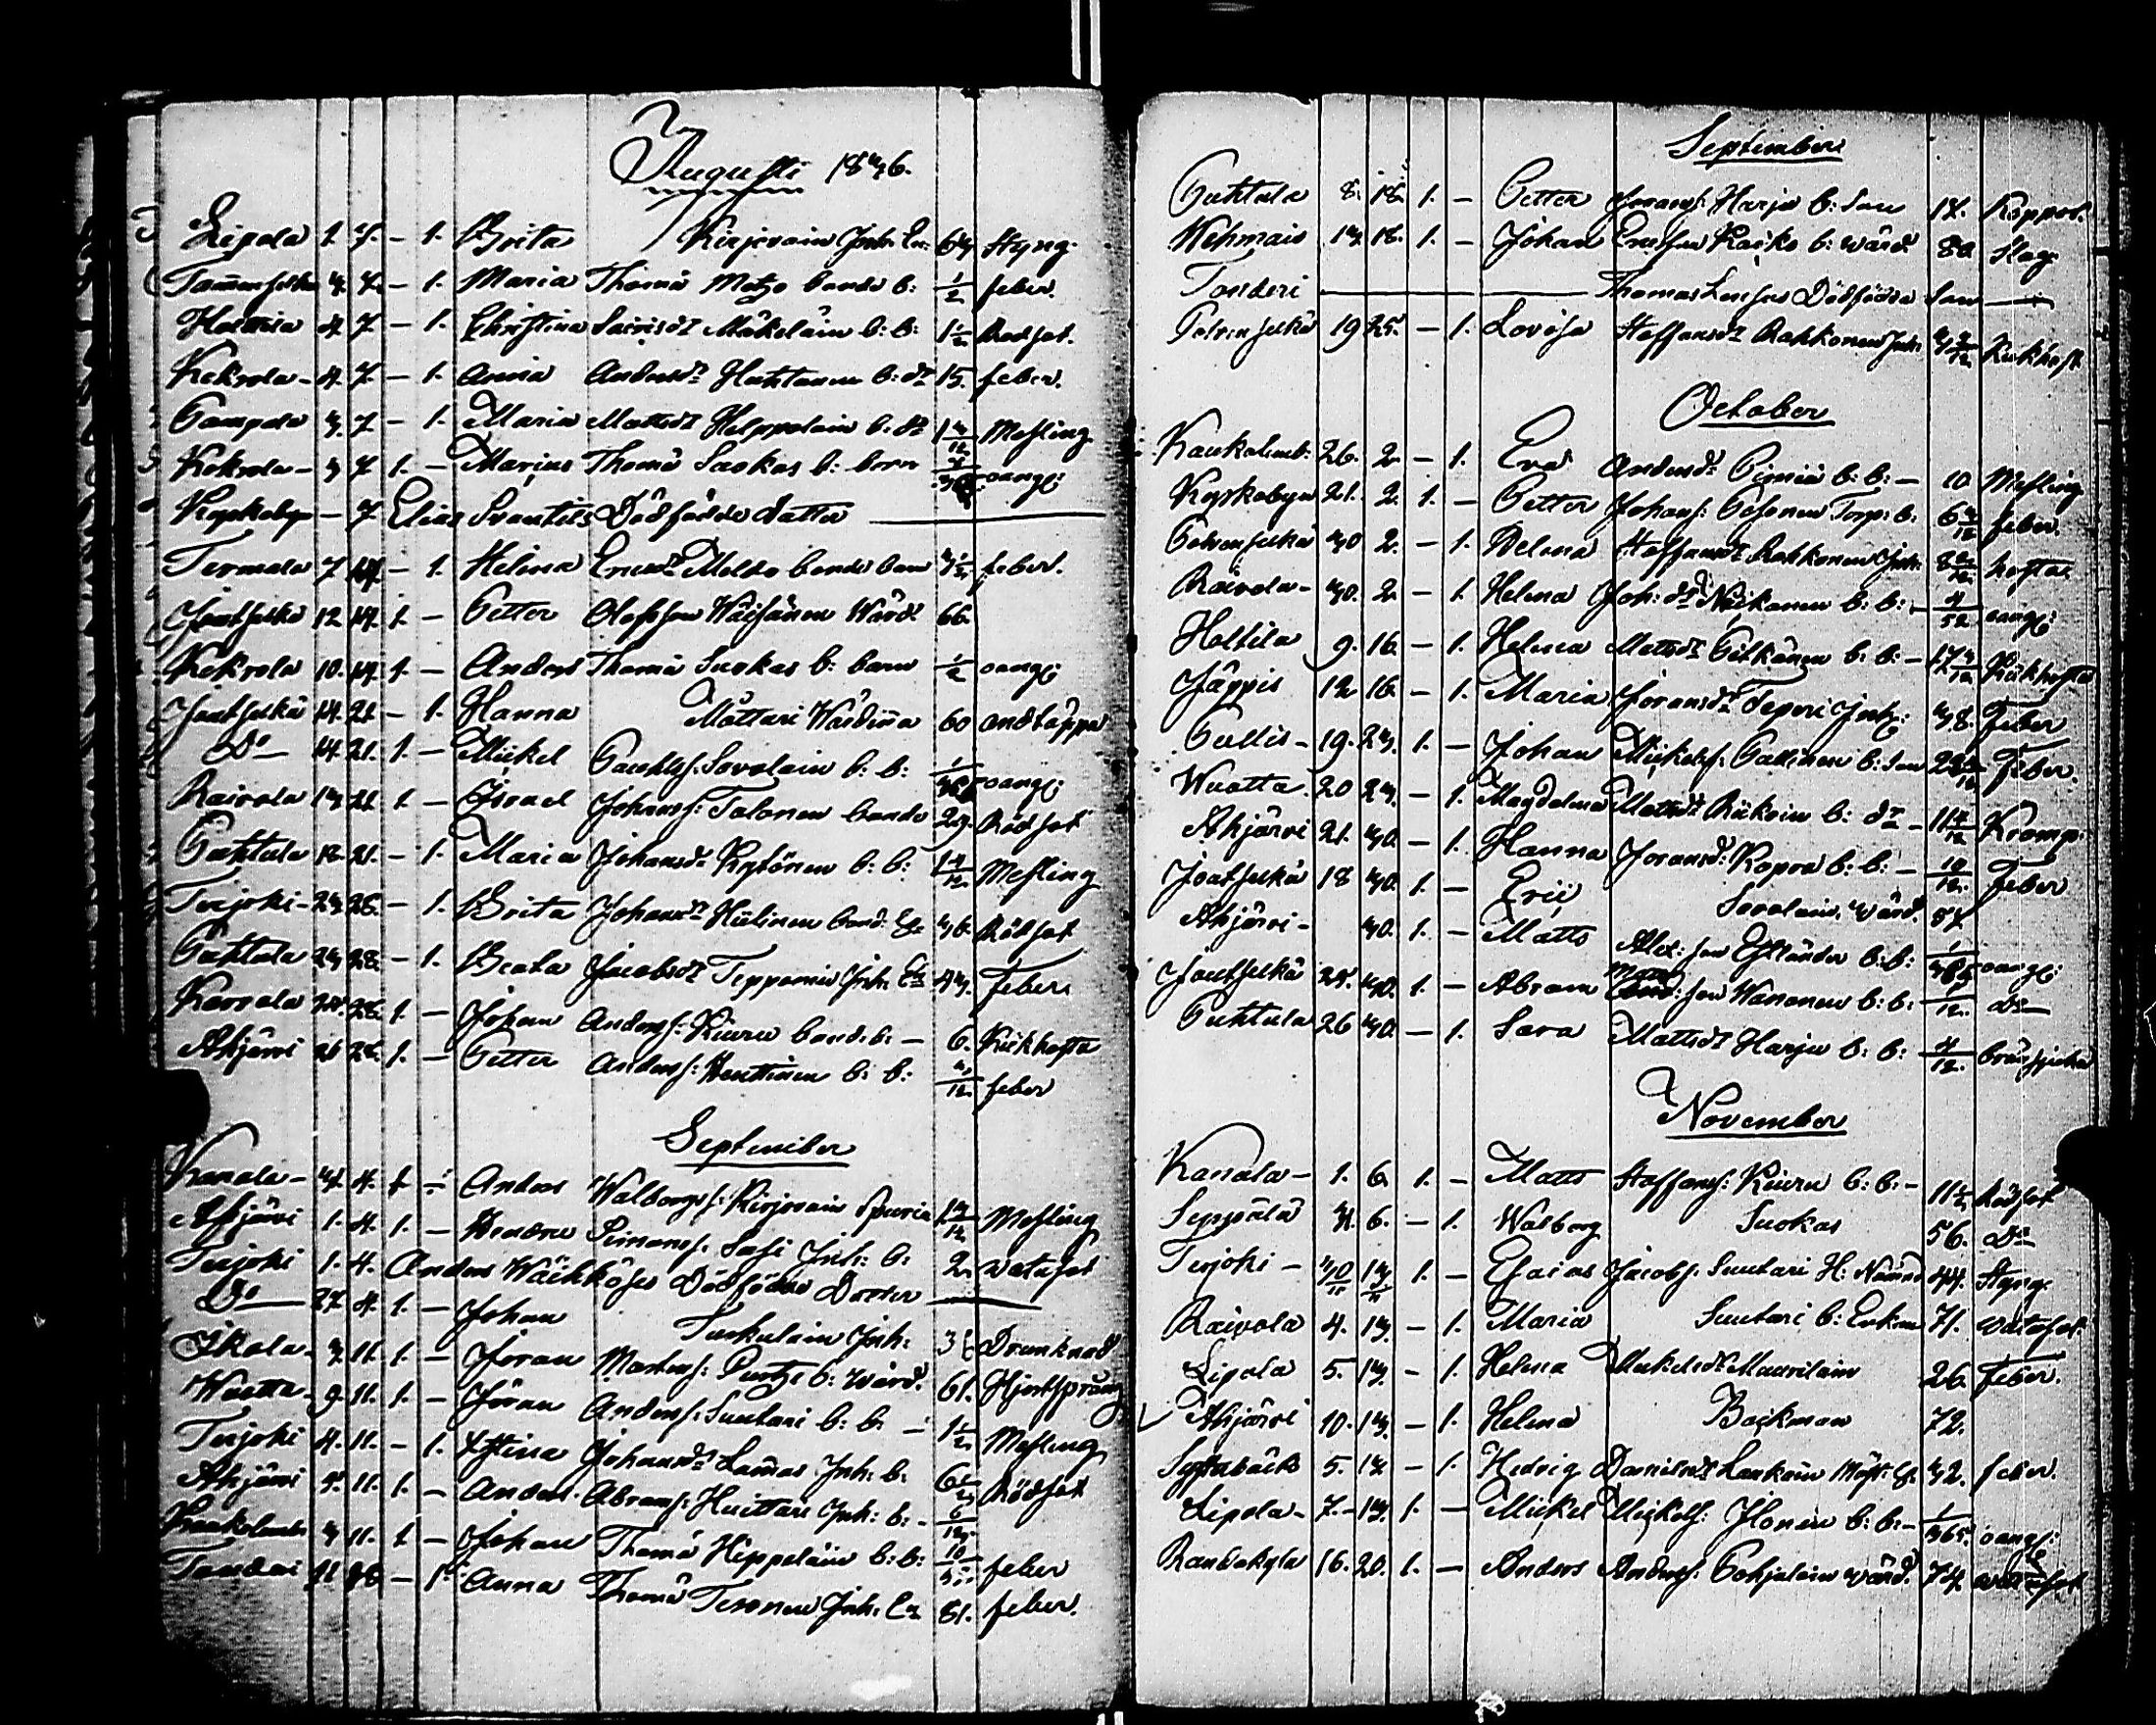 Augusti 1836.
Lipola 1. 7. – 1. Brita Kirjavain Inh. En. 63 Styng.
Tammiselkä 3. 7. – 1. Maria Thomæ Matzo bonde b: 1/2 feber.
Holttila 4 7 – 1. Christina Mäkeläin b: b: 1 1/2 Rödsot.
Kekrola – 4. 7. – 1. Anna Andersdr Huhtanen b: dr 15. feber.
Pampala 3. 7 – 1. Maria Mattsdr Helppolain b. dr 1 3/12 Mesling
Kekrola – 3 7 1. – Marius Thomæ Suokas b: barn oangf:
Kopkeby – 7 Elias Svantils Dödfödde dotter
Termola 7 14. – 1. Helena Ericsdr Melko bonde barn 3 1/2 feber.
Joutselkä 12 14. 1. – Petter Olofsson Wäisänen Wärd 66.
Kekrola 10. 14. 1. – Anders Thomæ Suokas b: barn 1/2 oangf:
Joutselkä 14. 21. – 1. Hanna Måttari Wärdinna 60 andtäppa
Do – 14. 21. 1. – Mickel Paulss. Savolain b: b: oangf:
Raivola 13 21. 1. – Israel Johanss: Talonen bonde 29. Rödsot
Puhtula 18. 21. – 1. Maria Johansdr Kytönen b: b: 1 4/12 Mesling
Terjoki – 23 28. – 1. Brita Johansdr Hiilinen bond. En 36. Rödsot
Puhtula 23 28. – 1. Beata Jacobsdr Tepponen Inh. En 43. Feber
Karvala 28. 1. – Johan Anderss. Kiuru bond. b: – 6. Kikhosta
Ahjärvi 26 28. 1. – Petter Anderss: Henttinen b: b: 3/12 feber
September
Kanala – 4. 1. – Anders Walborgs: Kirjavain Spuria 1 3/12 Mesling
Ahjärvi 1. 4. 1. – Simonss. Susi Inh: b: 2. watusot
Terjoki 1. 4. Anders Wäkköses Dödfödde Dotter
Do 27. 4. 1. – Johan Tuokulain Inh: Drunknad
Ikola – 3. 11. 1. – Jöran Mårtenss: b: wärd. 61. Hjertsprång
Wuotta – 9. 11. 1. – Jöran Anderss: Suutari b: b: – 1 1/2 Mesling
Terjoki 4. 11. – 1. Stina Johansdr Lamas Inh. b. 6 1/2 Rödsot
Ahjärvi 4. 11. 1. – Anders. Abramss: Huittari Inh: b: – 6/12
Kaukolemb: 3. 11. 1. – Johan Thomæ Hippeläin b: b: feber
Tonderi 11 18 – 1. Anna Thomæ Teronen Inh. En 81. feber.
September
Puhtula 8. 18. 1. – Petter Joranss: Harju b: son 17. Koppor.
Wehmais 14. 18. 1. – Johan Ericsson Raiko b: wärd 80. Slag
Tonderi Thomas Dödfödde Son
Polvenselkä 19 25. – 1. Lovisa Staffansdr Rahkonen Inh. Kikhost
October
Kaukolemb: 26. 2 – 1. Eva Andersdr Pimiä b: b: – 10 Mesling
Kopkebyn 21. 2. 1. – Petter Johans: Pesonen Torp: b: feber.
Polvenselkä 30 2. – 1. Helena Staffansdr Rahkonen Inh. hosta
Raivola – 30. 2 – 1. Helena Joh: dr Näikänen b: b: – 4/52 oangf:
Holtila 9. 16. – 1. Helena Mattsdr Pitkänen b: b: – Kikhosta
Jäppis 12 16. – 1. Maria Joransdr Teperi Inh: 38. Feber
Pullis – 19. 23. 1. – Johan Mickelss. Pullinen b: son Feber.
Wuotta. 20 23. – 1. Magdalena Mattsdr Räikein b: dr – Kramp.
Ahjärvi 21. 30. – 1. Hanna Joransd: Kopra b: b: – 10/12. Feber
Joutselkä 18 30. 1. – Eric Savolain, wärd. 57
Ahjärvi – 30. 1. – Matts Alex: son Estländer b: b: oangf:
Joutselkä 24. 30. 1. – Abram Matts: son Wananen b: b: 1/12. Do
Puhtula 26 30. – 1. Sara Mattsdr Harju b: b: 4/12. bröstsjuka
November
Kanala – 1. 6. 1. – Matts Staffans: Kiuru b: b: – 11 1/2 Rödsot
Seppälä 6. – 1. Walborg Suokas 56. Do
Terjoki – 30/10 13/11 1. – Esaias Jacobs. Suutari H: Nämnd 44. Styng:
Raivola 4. 13. – 1. Maria Suutari b: Enka 71. watusot
Lipola 5. 13. – 1. Helena Mickelsdr Muurilain 26. Feber.
Ahjärvi 10. 13. – 1. Helena Backman 72.
Systerbäck 5. 13 – 1. Hedvig Danielsdr Laukain En. 32. feber.
Lipola – 7. – 13. 1. – Mickel Mickelss. Ilonen b: b: – 1/365. oangf:
Raudakylä 16. 20. 1. – Anders Anderss. Pohjolain wärd. 74. watusot